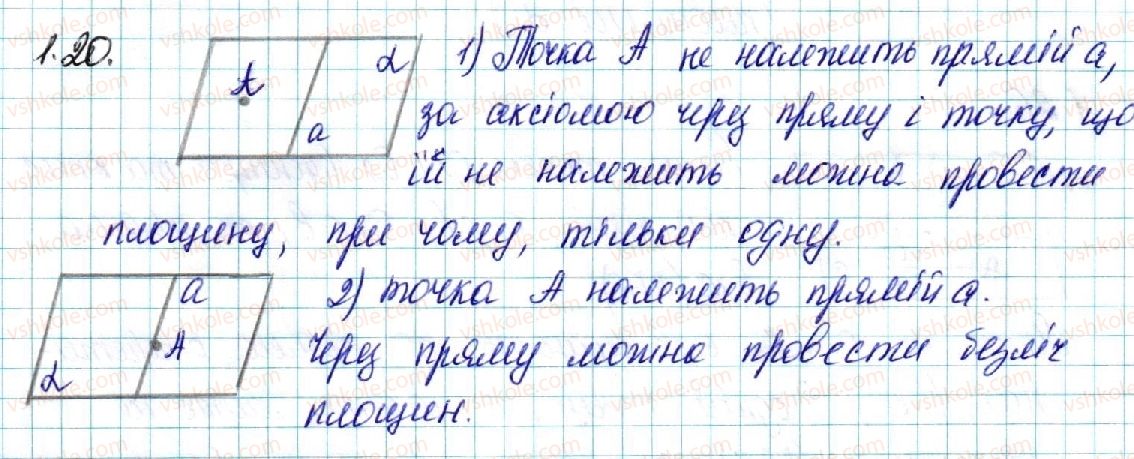 1.20.
A α a
1) Точка A не належить прямій a,
за аксіомою через пряму і точку, що
їй не належить можна провести
площину, при чому, тільки одну.
a A α
2) точка A належить прямій a.
Через пряму можна провести безліч
площин.
vshkole.com